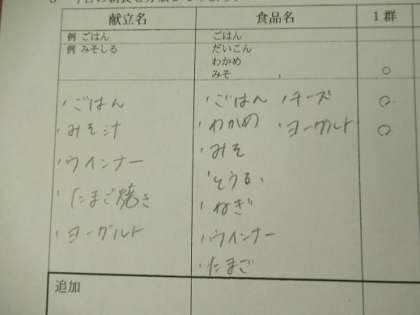 献立名 食品名 1群
例 ごはん ごはん
例 みそしる だいこん
わかめ
みそ ○
・ごはん ・ごはん ・チーズ ○
・みそ汁 ・わかめ ・ヨーグルト ○
・ウインナー ・みそ
・たまご焼き
・ねぎ
・ヨーグルト ・ウインナー
・たまご
追加